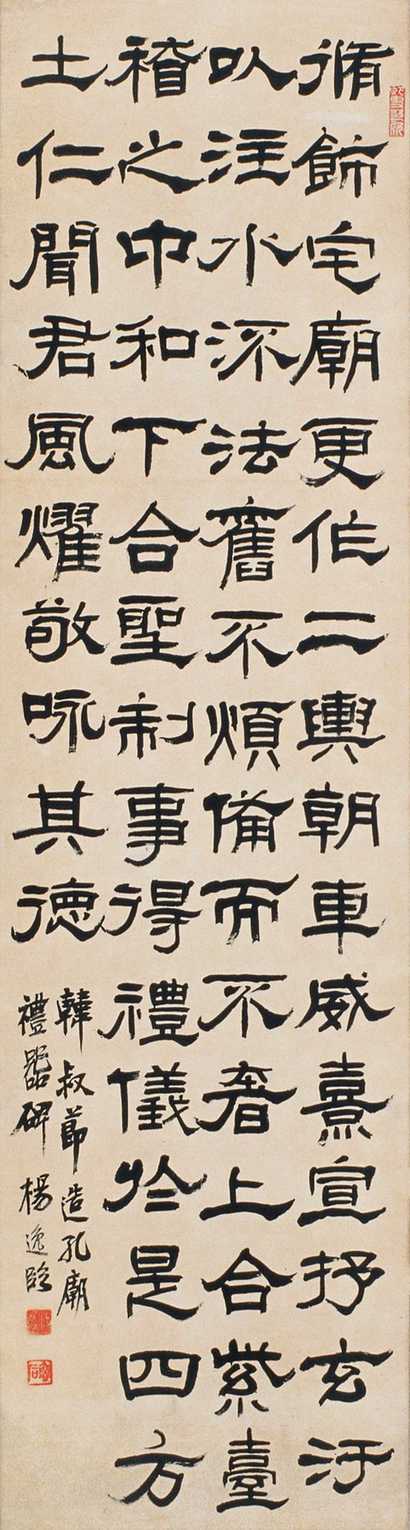 脩飾宅廟更作二輿朝車威熹宣抒玄汙
以注水流法舊不煩備而不奢上合紫臺
稽之中和下合聖制事得禮儀於是四方
土仁聞君風耀敬咏其德
韓叔節造孔廟
禮器碑 楊逸臨